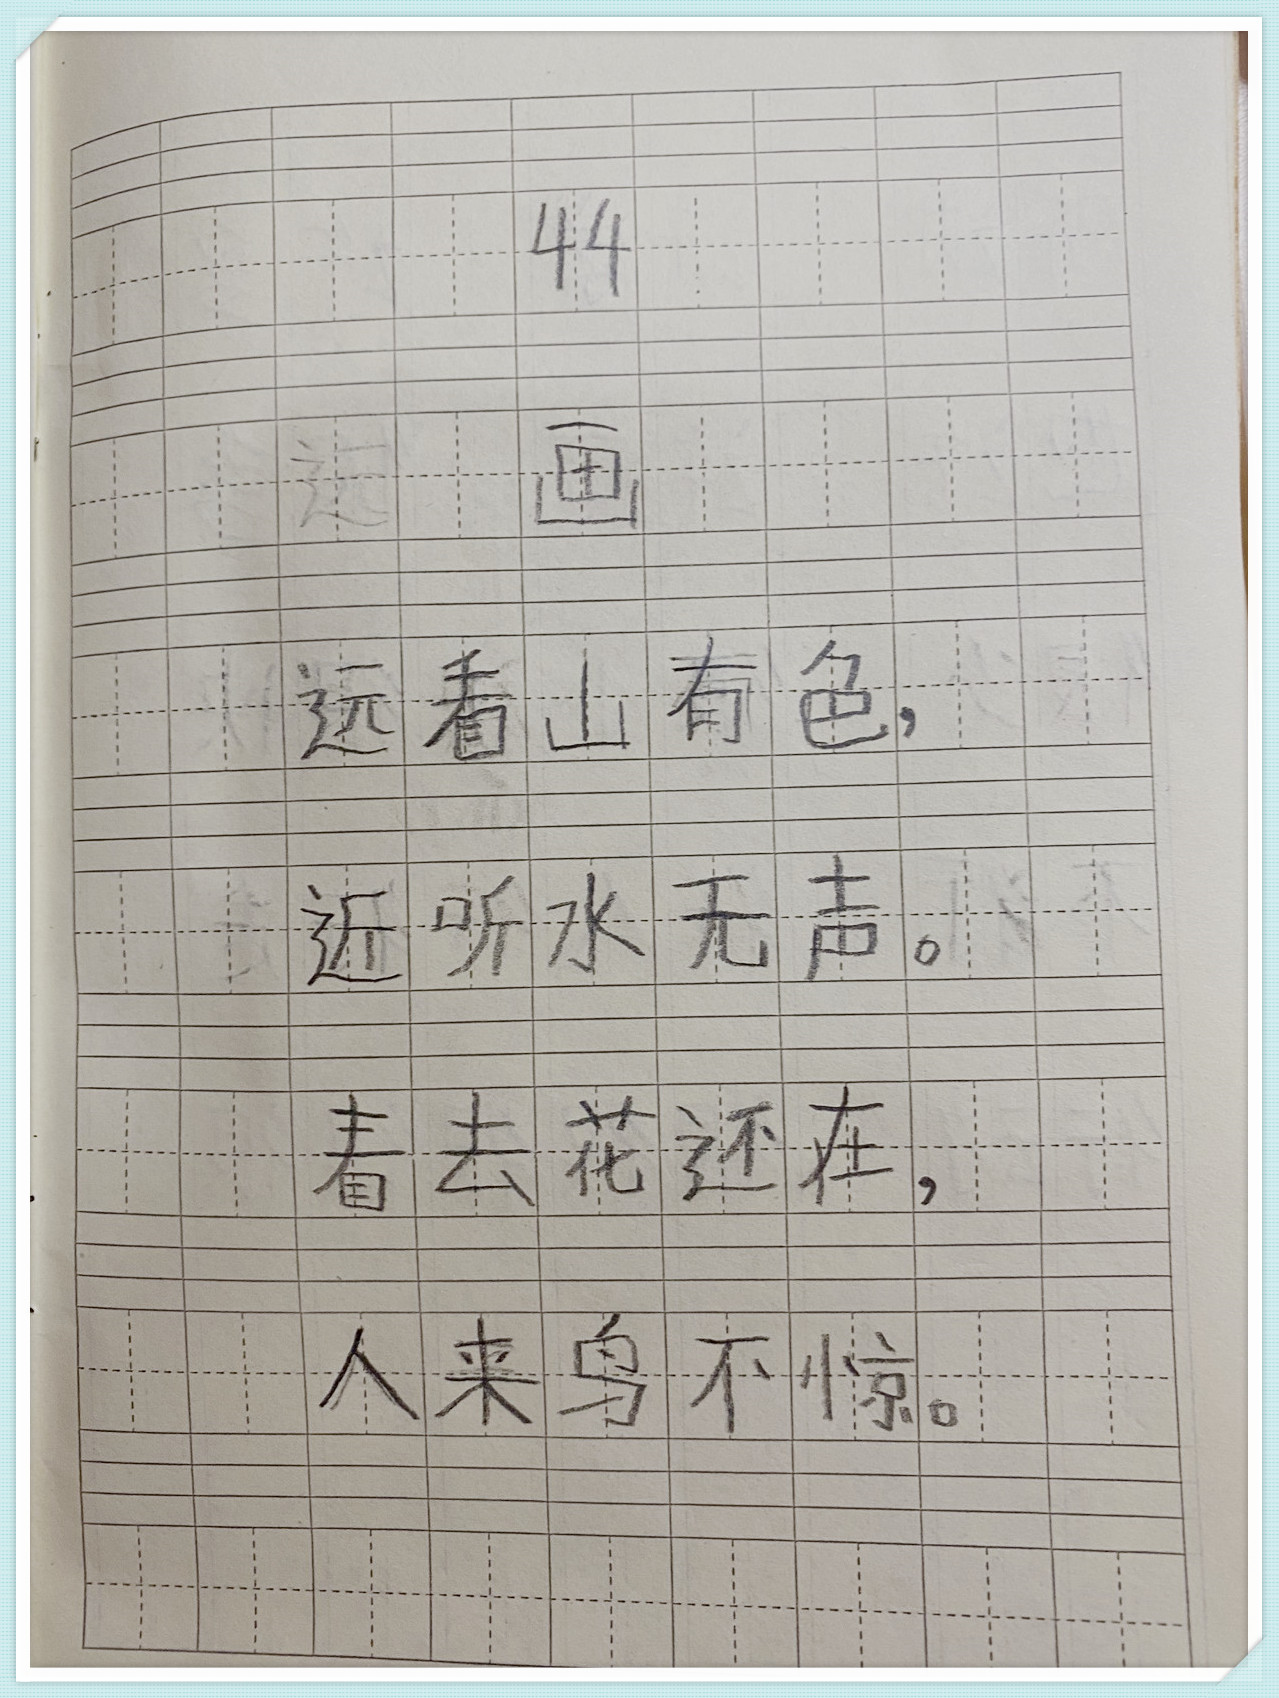 44
画
远看山有色，
近听水无声。
春去花还在，
人来鸟不惊。